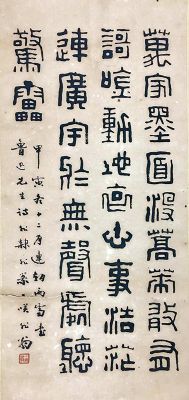 萬家墨面沒蒿萊敢有
歌吟動地哀心事浩茫
連廣宇於無聲處聽
驚雷
甲寅冬十二月連朝雨雪書
魯迅先生詩